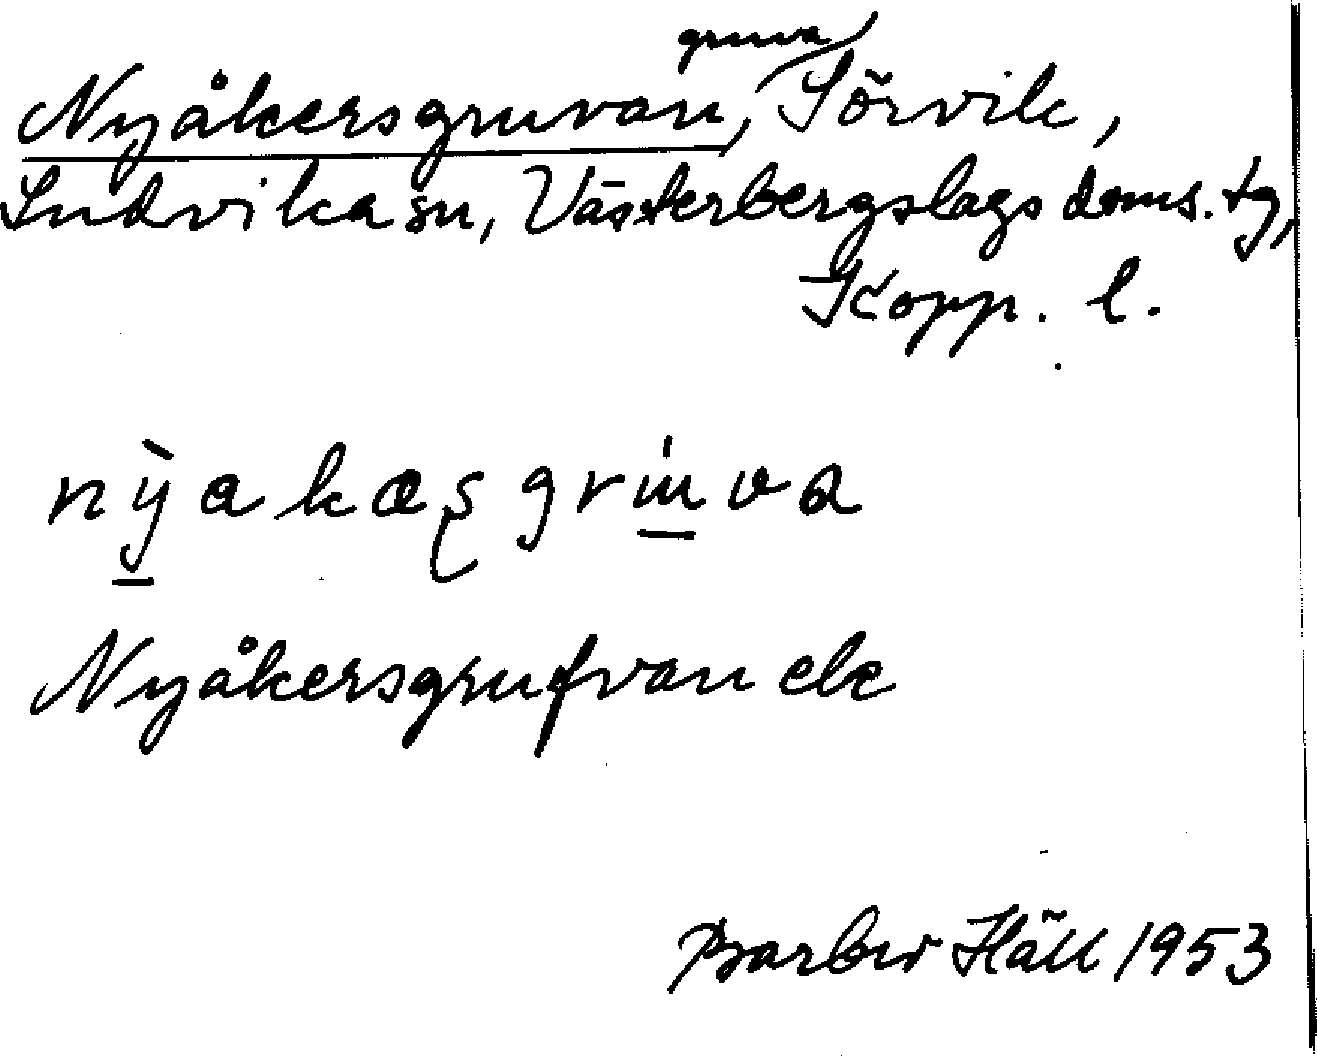 gruva
Nyåkersgruvan, Sörvik,
Ludvika sn, Västerbergslags doms. tg,
Kopp. l.
nỳakæʂgrúva
Nyåkersgrufvan ek
Barbro Häll 1953